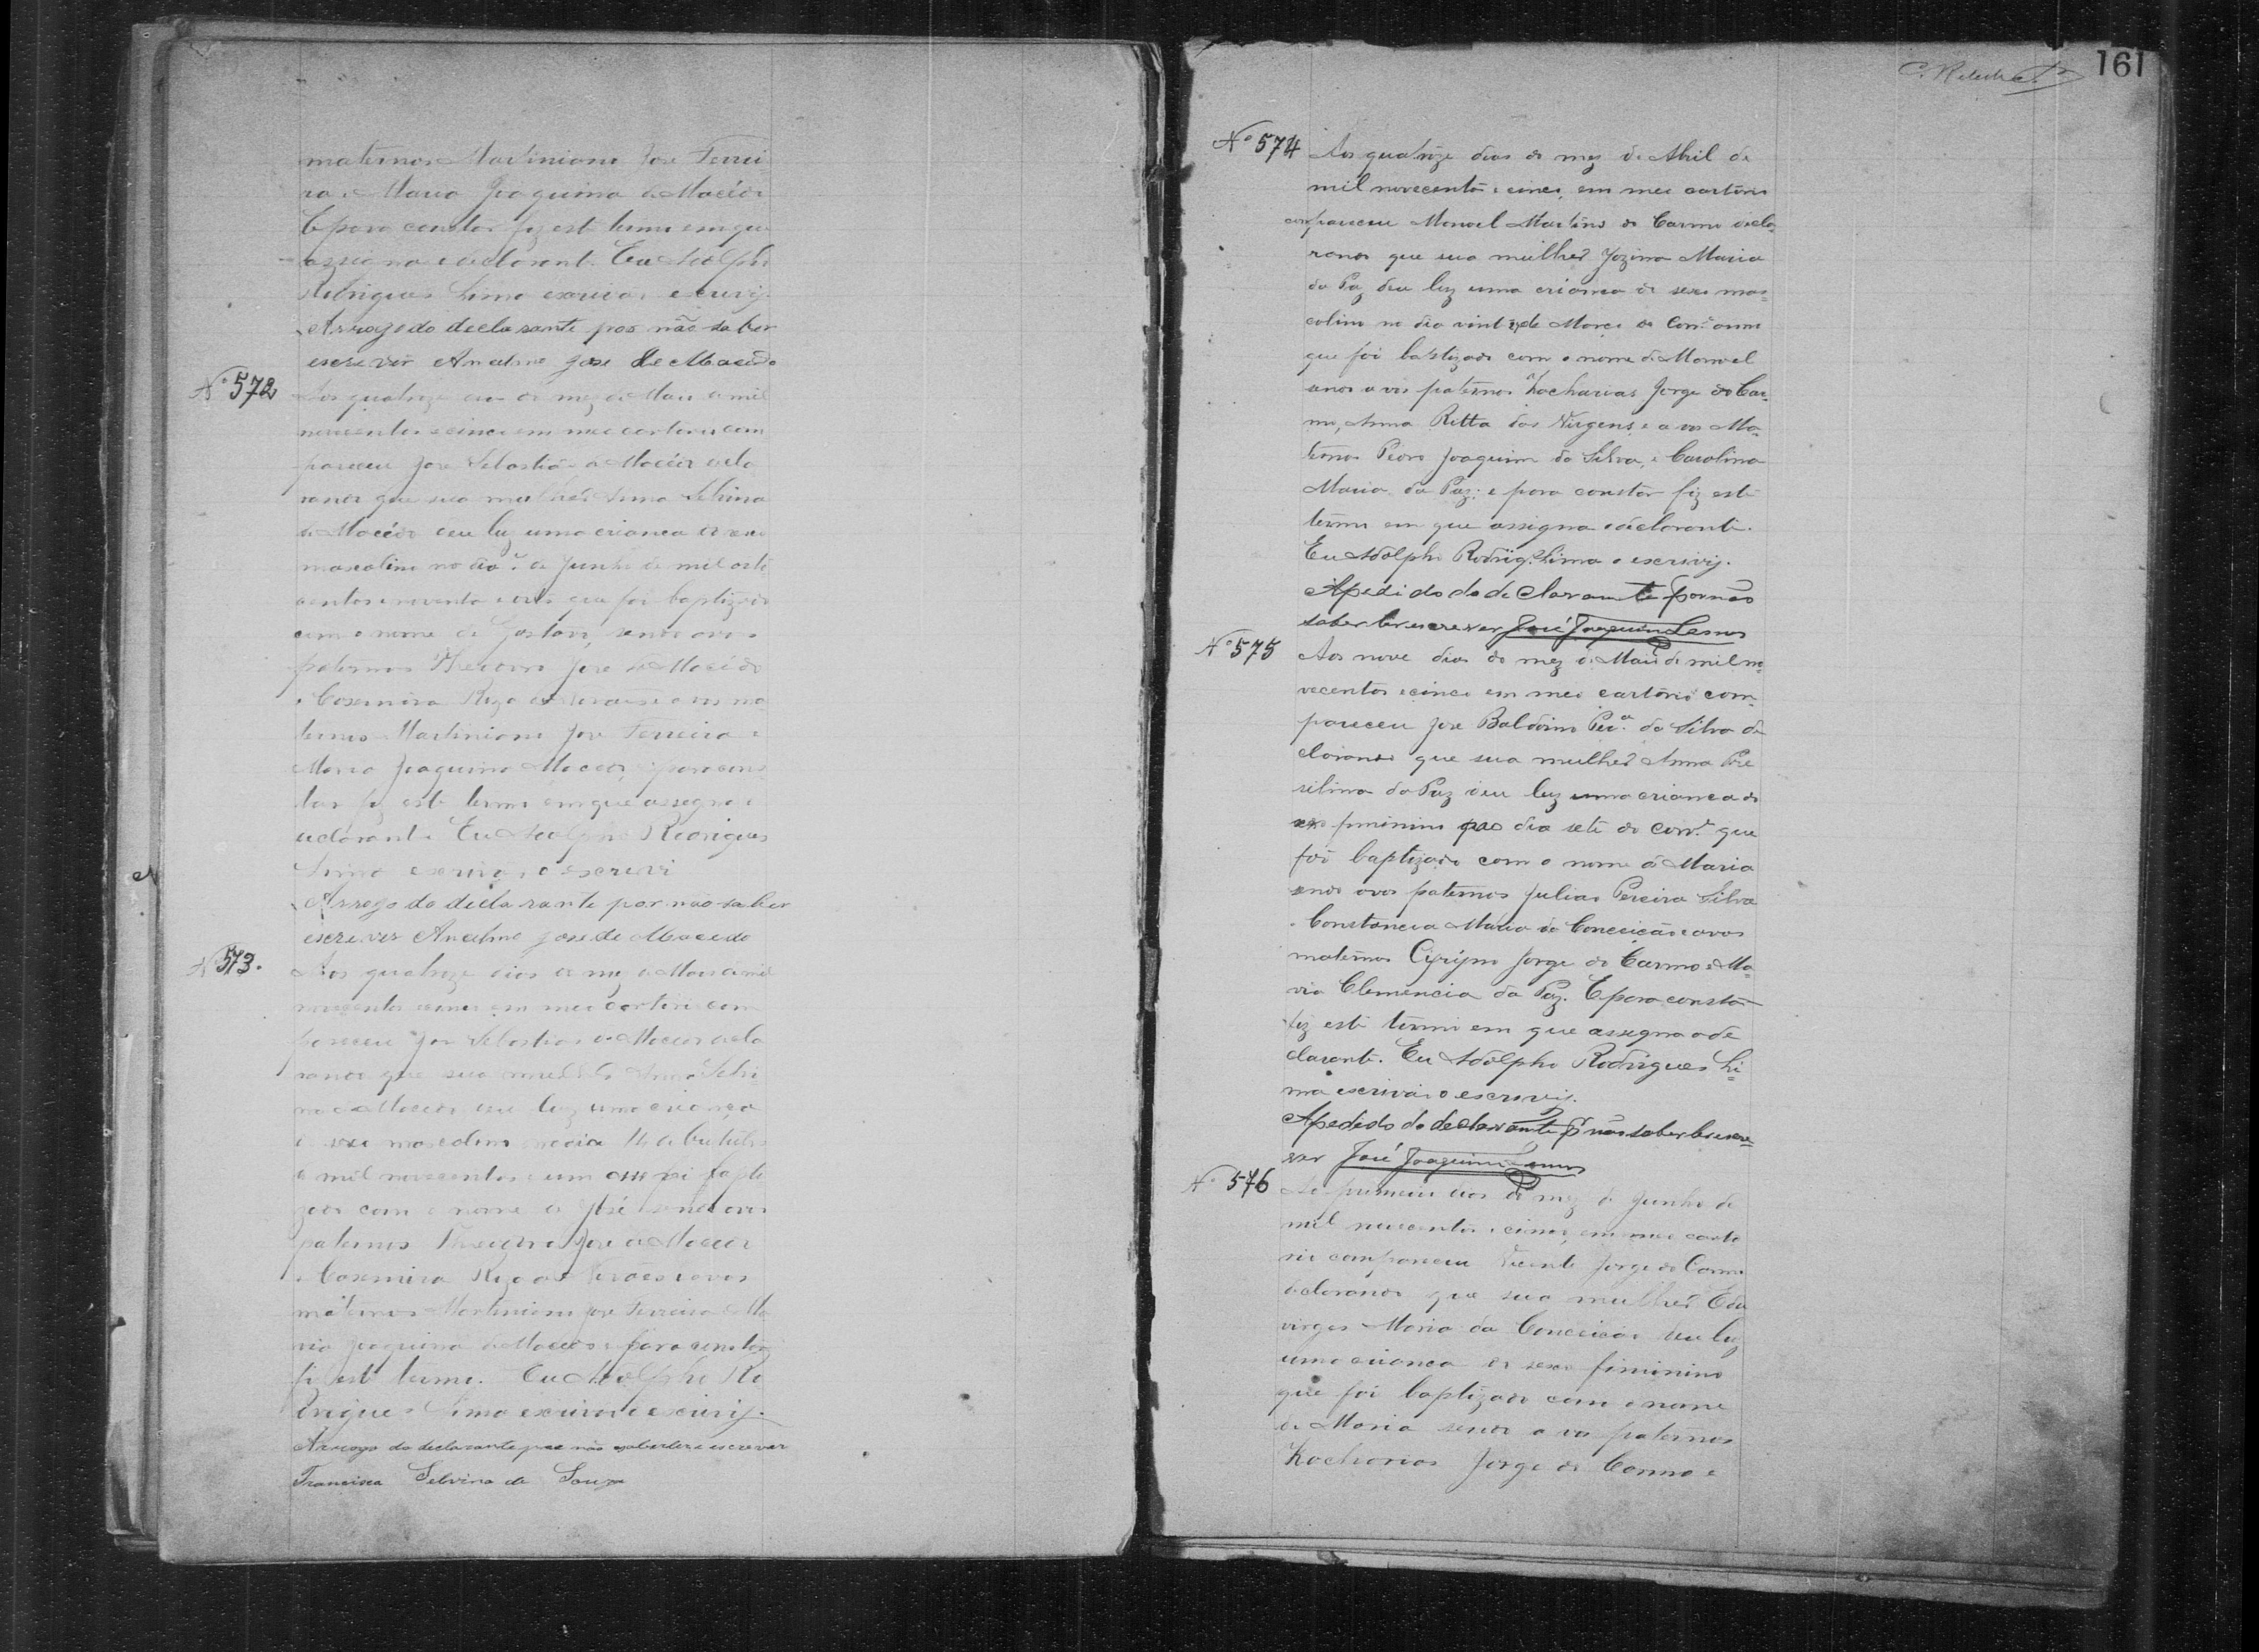 maternos Martiniano José Ferrei
ra e Maria Joaquina de Macêdo
E para constar fiz este termo em que
assigna o declarante. Eu Adolpho
Rodrigues Lima escrivão escrevij.
Arrogo do declarante por não saber
escrever Anselmo José de Macedo
Nº 572
Aos quatroze dias do mez de Maio de mil
novecentos e cinco em meu cartorio com
pareceu José Sebastião de Macêdo decla
rando que sua mulher Anna
de Macêdo deu luz uma crianca do sexo
masculino no dia de Junho de mil oito
centos e noventa e que foi baptizado
com o nome de Gustavo, sendo avos
paternos José de Macêdo
e Casemira e avos ma
ternos Martiniano José Ferreira e
Maria Joaquina Macedo, e para cons
tar fiz este termo em que assigna o
declarante Eu Adolpho Rodrigues
Lima escrivão o escrevi
Arrogo do declarante por não saber
escrever Anselmo José de Macedo
Nº 573.
Aos quatroze dias do mez de Maio de mil
novecentos e cinco em meu cartorio com
pareceu José Sebastião de Macedo decla
rando que sua mulher Anna
de Macedo deu luz uma criança
do sexo masculino no dia 14 de
de mil novecentos e um foi bapti
zado com o nome de José sendo avos
paternos José de Macedo
e Casemira e avos
maternos Martiniano José Ferreira e Ma
ria Joaquina de Macedo e para constar
fiz este termo. Eu Adolpho Ro
drigues Lima escrivão o escrevij.
Arrogo do declarante por não saber ler e escrever
Francisca Selvina de Souza
161
Nº 574
Aos quatroze dias do mez de Abril de
mil novecentos e cinco, em meu cartorio
compareceu Manoel Martins do Carmo decla-
rando que sua mulher Jozina Maria
da Paz deu luz uma crianca do sexo mas-
colino no dia vinte de Março do Corre anno
que foi batizado com o nome de Manoel
sendo avos paternos Zacharias Jorge do Car-
mo, Anna Ritta das Virgens, e avos Ma-
ternos Pedro Joaquim da Silva, e Carolina
Maria da Paz: e para constar fiz este
termo em que assigna o declarante.
Eu Adolpho Rodrigs Lima o escrevij.
Apedido do declarante por não
saber ler escrever José Joaquim Lemos
Nº 575
Aos nove dias do mez de Maio de mil no-
vecentos e cinco em meu cartório com-
pareceu José Baldoino Perª da Silva de
clarando que sua mulher Anna
da Paz deu luz uma crianca do
sexo feminino no dia sete do corre que
foi baptizado com o nome de Maria
sendo avos paternos Julião Pereira Silva
e Constancia Maria da Conceição e avos
maternos Jorge do Carmo e Ma-
ria Clemencia da Paz. E para constar
fiz este termo em que assigna o de
clarante. Eu Adolpho Rodrigues Li-
ma escrivão o escrevij.
Apedido do declarante pr não saber ler escre-
ver José Joaquim Lemos
Nº 576
Ao primeiro dias do mez de Junho de
mil novecentos e cinco, em meu carto
rio compareceu Vicente Jorge do Carmo
declarando que sua mulher Edu
virges Maria da Conceicão deu luz
uma crianca do sexo feminino
que foi baptizado com o nome
de Maria sendo avos paternos
Zacharias Jorge do Carmo e